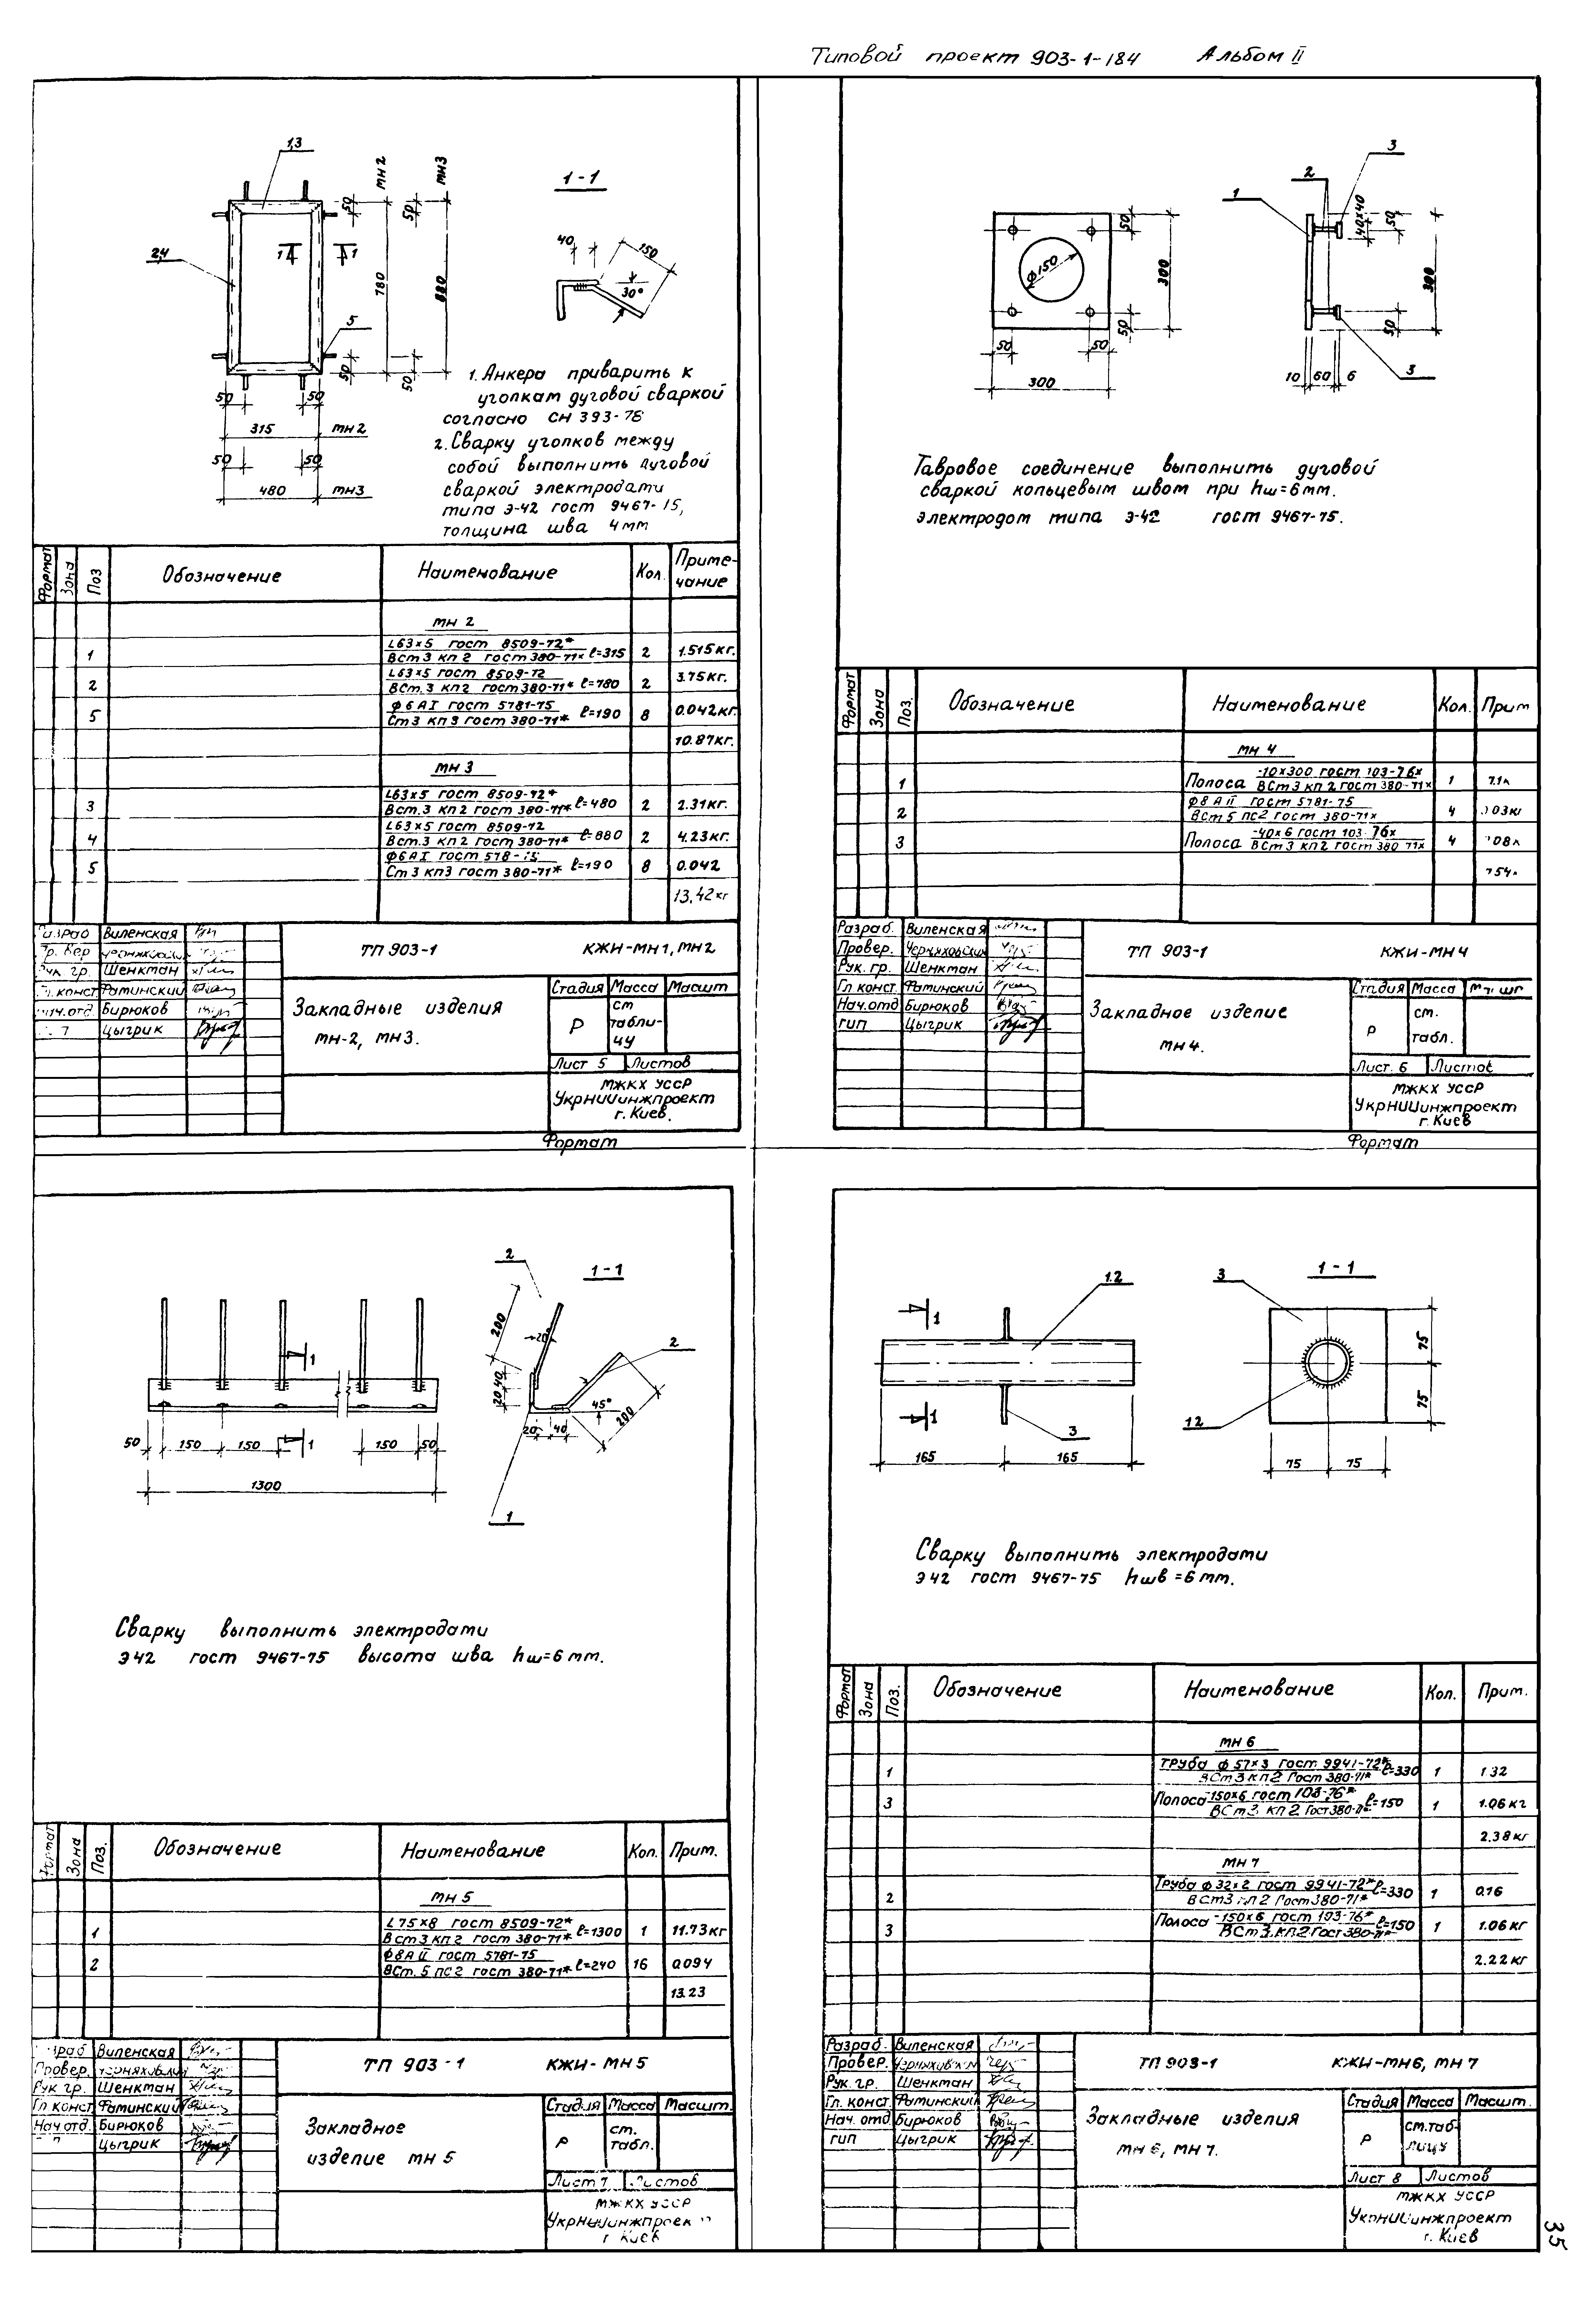 Типовой проект 903-1-184 Альбом II
1,3
2,4
5
50
50
780
880
мн2
мн3
50
50
50 50
315 мн2
50 50
480 мн3
1 1
1-1
40
150
30°
1. Анкера приварить к
уголкам дуговой сваркой
согласно СН 393-78
2. Сварку уголков между
собой выполнить дуговой
сваркой электродати
типа Э-42 гост 9467-75,
толщина шва 4мм
Формат Зона Поз Обозначение Наименование Кол. Приме-
чание
мн 2
L63×5 гост 8509-72*
1 ВСт3 кп2 гост 380-71× ℓ=315 2 1.515кг.
L63×5 гост 8509-72
2 ВСт.3 кп2 гост 380-71* ℓ=780 2 3.75кг.
Ф6АI гост 5781-75
5 Ст3 кп3 гост 380-71* ℓ=190 8 0.042кг
10.87кг.
мн 3
L63×5 гост 8509-72*
3 Вст.3 кп2 гост 380-71* ℓ=480 2 2.31кг.
L63×5 гост 8509-72
4 Вст.3 кп2 гост 380-71* ℓ=880 2 4.23кг.
Ф6АI гост
5 Ст3 кп3 гост 380-71* ℓ=190 8 0.042
13,42кг
Виленская
Шенктан
Фатинский
Бирюков
Цыгрик
ТП 903-1 КЖИ-МН1, МН2
Закладные изделия
мн-2, мн3.
Стадия Масса Масшт
Р ст табли-
цу
Лист 5 Листов
МЖКХ УССР
УкрНИИинжпроект
г. Киев.
Формат
1
2
3
3
Ф150
50
300
50
50 50
300
40×40
50
300
50
10 60 6
Тавровое соединение выполнить дуговой
сваркой кольцевым швом при hш=6мм.
электродом типа Э-42 гост 9467-75.
Формат Зона Поз. Обозначение Наименование Кол. Прим
мн 4
1 Полоса -10×300 гост 103-76×
ВСт3 кп2 гост 380-71× 1
Ф8АII гост 5781-75
2 ВСт5 пс2 гост 380-71× 4
3 Полоса -40×6 гост 103-76×
ВСт3 кп2 гост 380 71× 4
Разраб. Виленская
Провер. Черняховский
Рук. гр. Шенктан
Гл конст. Фатинский
Нач.отд Бирюков
гип Цыгрик
ТП 903-1 КЖИ-МН4
Закладное изделие
мн 4.
Стадия Масса
Р ст.
табл.
Лист. 6 Листов
МЖКХ УССР
УкрНИИинжпроект
г. Киев
Формат
2
1-1
200
20°
2
20 40
45°
20 40
200
1
1
1
50 150 150 150 50
1300
Сварку выполнить электродати
Э42 гост 9467-75 высота шва hш=6мм.
Зона Поз. Обозначение Наименование Кол. Прим.
мн 5
L75×8 гост 8509-72*
1 ВСт3 кп2 гост 380-71* ℓ=1300 1 11.73кг
Ф8АII гост 5781-75
2 ВСт.5 пс2 гост 380-71* ℓ=240 16 0.094
13.23
Виленская
Провер.
Рук гр. Шенктан
Гл конст Фатинский
Нач.отд. Бирюков
Цыгрик
ТП 903-1 КЖИ-МН5
Закладное
изделие мн 5
Стадия Масса Масшт.
Р ст.
табл.
Лист 7 Листов
МЖКХ УССР
г. Киев
1
1
1.2
3
165 165
3
1-1
12
75
75
75 75
Сварку выполнить электродати
Э42 гост 9467-75 hшв=6мм.
Формат Зона Поз. Обозначение Наименование Кол. Прим.
мн 6
Труба ф57×3 гост 9941-72*
1 ВСт3 кп2 Гост 380-71* ℓ=330 1 1.32
3 Полоса -150×6 гост 103-76*
ВСт3 кп2 гост 380-71* ℓ=150 1 1.06кг
2.38кг
мн 7
Труба ф32×2 гост 9941-72*
2 ВСт3 кп2 Гост 380-71* ℓ=330 1 0.16
3 Полоса -150×6 гост 103-76*
ВСт3 кп2 гост 380-71* ℓ=150 1 1.06кг
2.22кг
Разраб. Виленская
Провер.
Рук. гр. Шенктан
Гл. конст. Фатинский
Нач. отд. Бирюков
гип Цыгрик
ТП 903-1 КЖИ-МН6, МН7
Закладные изделия
мн 6, мн 7.
Стадия Масса Масшт.
Р ст.таб-
лицу
Лист 8 Листов
МЖКХ УССР
УкрНИИинжпроект
г. Киев
35